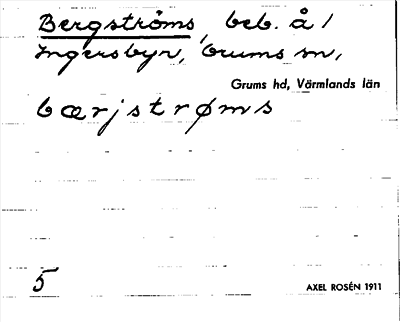 Bergströms, beb. å /
Ingersbyn, Grums sn,
Grums hd, Värmlands län
bærjstrøms
5
AXEL ROSÉN 1911